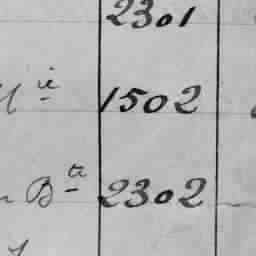 2301
ie 1502
Bte 2302